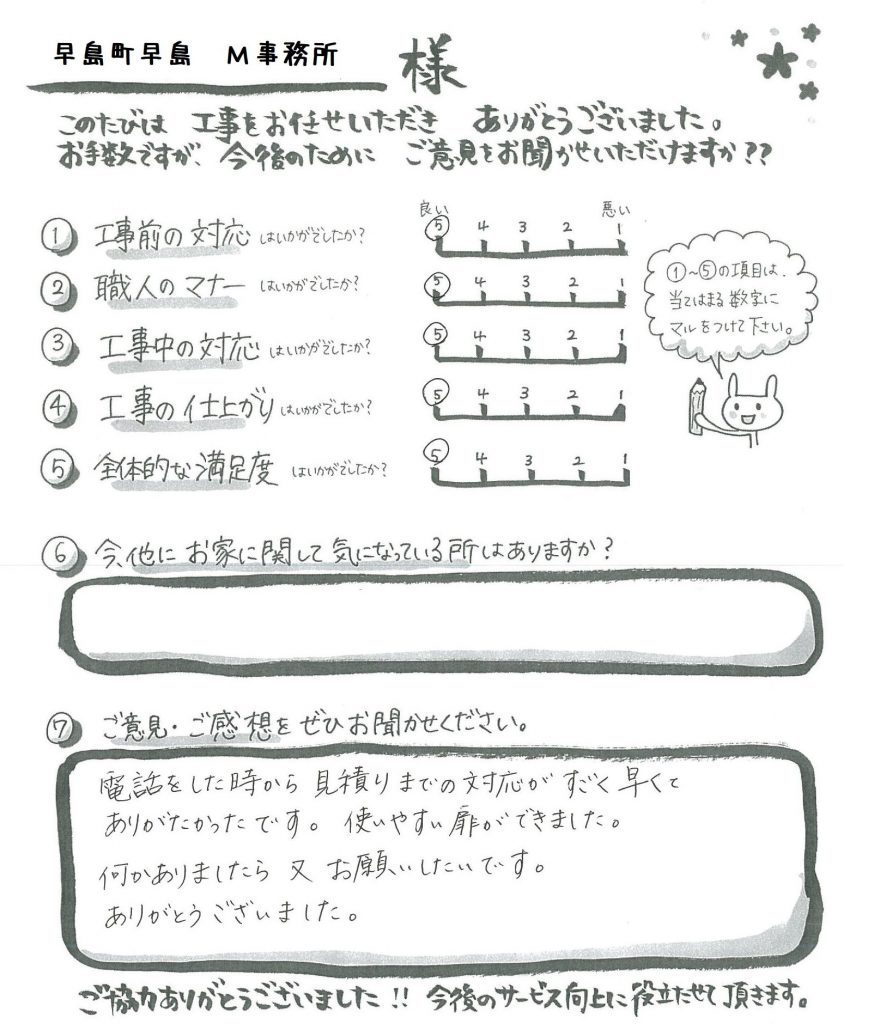 早島町早島 M事務所 様
このたびは 工事をお任せいただき ありがとうございました。
お手数ですが、今後のために ご意見をお聞かせいただけますか??
良い 悪い
① 工事前の対応 はいかがでしたか? 5 4 3 2 1
② 職人のマナー はいかがでしたか? 5 4 3 2 1
③ 工事中の対応 はいかがでしたか? 5 4 3 2 1
④ 工事の仕上がり はいかがでしたか? 5 4 3 2 1
⑤ 全体的な満足度 はいかがでしたか? 5 4 3 2 1
①~⑤の項目は、
当てはまる数字に
マルをつけて下さい。
⑥ 今、他に お家に関して気になっている所はありますか?
⑦ ご意見・ご感想をぜひお聞かせください。
電話をした時から 見積りまでの対応が すごく早くて
ありがたかったです。使いやすい扉ができました。
何かありましたら 又 お願いしたいです。
ありがとうございました。
ご協力ありがとうございました!! 今後のサービス向上に役立たせて頂きます。